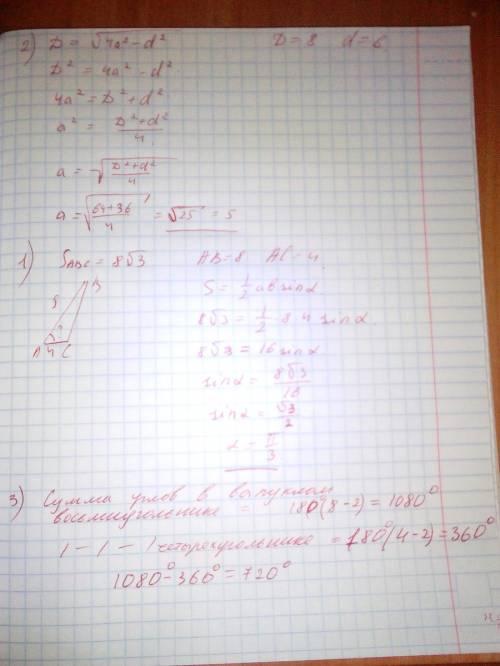 2) D = √4a² - d² D = 8 d = 6
D² = 4a² - d²
4a² = D² + d²
a² = D² + d² / 4
a = √D² + d² / 4
a = √64 + 36 / 4 = √25 = 5
1) S ABC = 8√3 AB = 8 AC = 4
S = 1/2 ab sin α
8√3 = 1/2 · 8 · 4 sin α
8√3 = 16 sin α
sin α = 8√3 / 16
sin α = √3 / 2
α = π / 3
B
8
A 4 C
3) Сумма углов в выпуклом
восьмиугольнике = 180(8-2) = 1080°
| - | - | четырехугольнике = 180°(4-2) = 360°
1080° - 360° = 720°